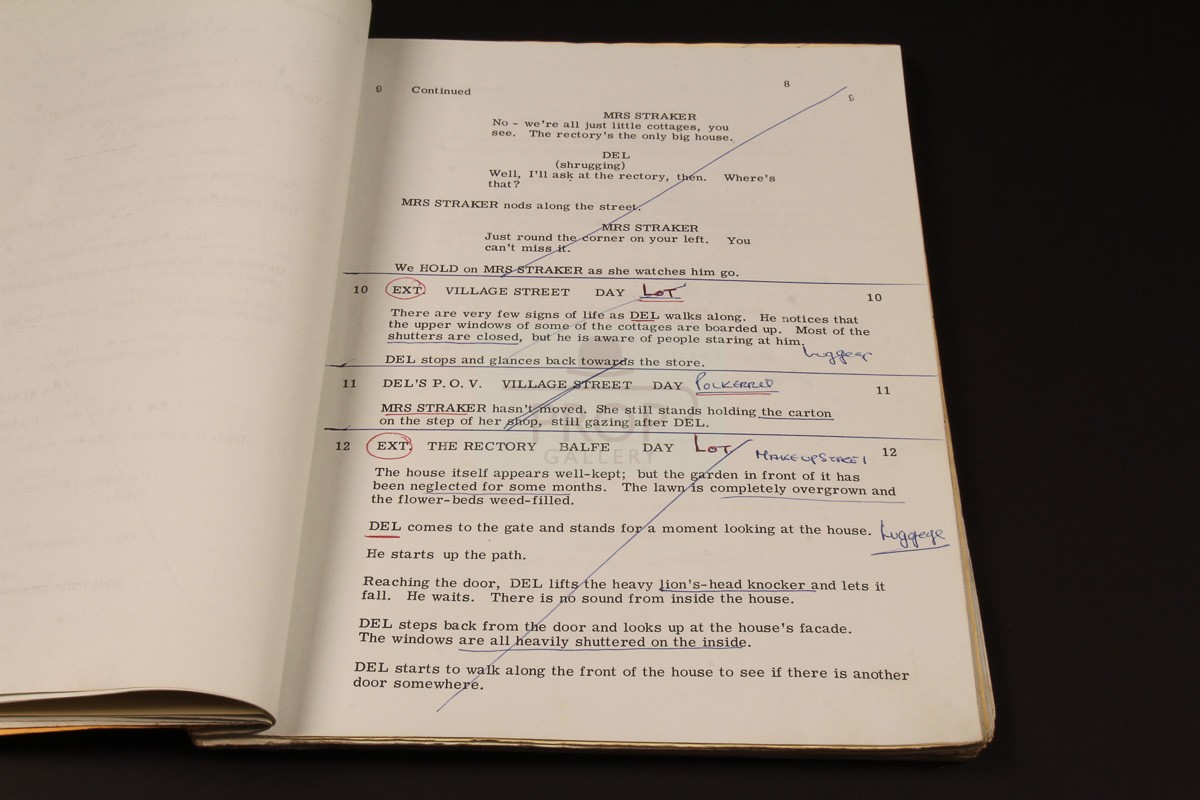 8
9 Continued 9
MRS STRAKER
No - we're all just little cottages, you
see. The rectory's the only big house.
DEL
(shrugging)
Well, I'll ask at the rectory, then. Where's
that?
MRS STRAKER nods along the street.
MRS STRAKER
Just round the corner on your left. You
can't miss it.
We HOLD on MRS STRAKER as she watches him go.
10 EXT. VILLAGE STREET DAY LOT 10
There are very few signs of life as DEL walks along. He notices that
the upper windows of some of the cottages are boarded up. Most of the
shutters are closed, but he is aware of people staring at him.
DEL stops and glances back towards the store.
11 DEL'S P.O.V. VILLAGE STREET DAY POLKERRIS 11
MRS STRAKER hasn't moved. She still stands holding the carton
on the step of her shop, still gazing after DEL.
PROP
GALLERY
12 EXT. THE RECTORY BALFE DAY LOT MAKE UP STAGE 1 12
The house itself appears well-kept; but the garden in front of it has
been neglected for some months. The lawn is completely overgrown and
the flower-beds weed-filled.
DEL comes to the gate and stands for a moment looking at the house. Luggage
He starts up the path.
Reaching the door, DEL lifts the heavy lion's-head knocker and lets it
fall. He waits. There is no sound from inside the house.
DEL steps back from the door and looks up at the house's facade.
The windows are all heavily shuttered on the inside.
DEL starts to walk along the front of the house to see if there is another
door somewhere.